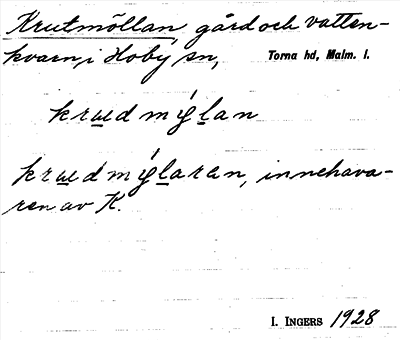 Krutmöllan, gård och vatten-
kvarn, i Hoby sn, Torna hd, Malm. l.
krɯdmýlan
krɯdmýlaran, innehava-
ren av K.
I. INGERS 1928